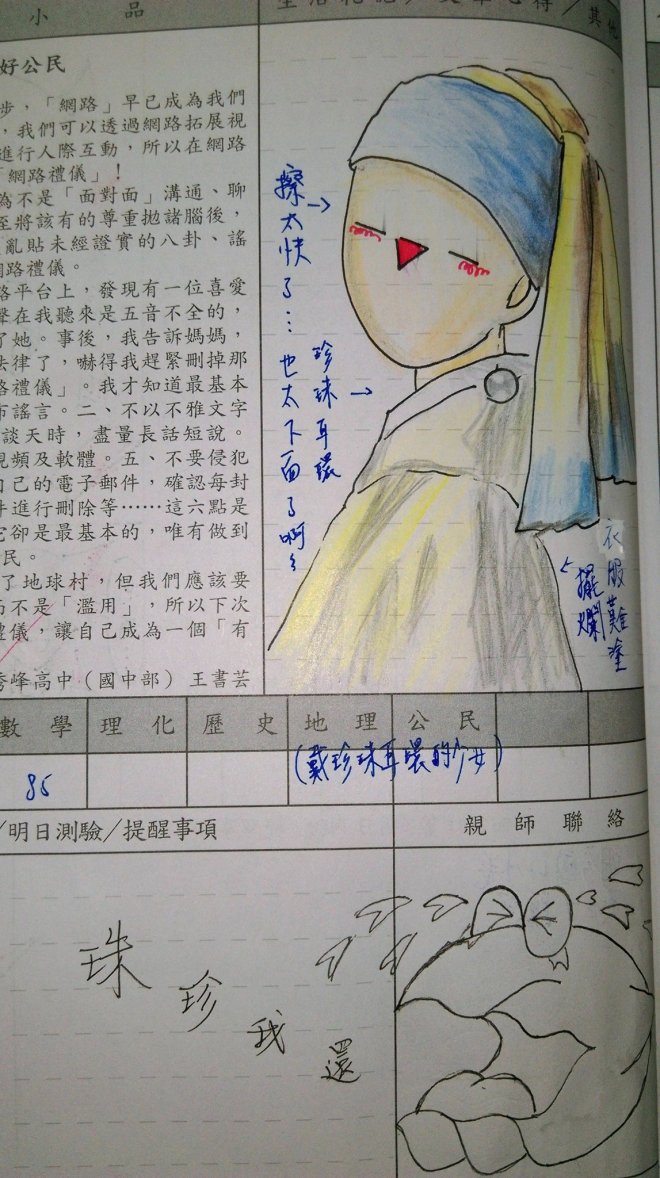 小品
生活札記／文章心得／其他
好公民
步，「網路」早已成為我們
，我們可以透過網路拓展視
進行人際互動，所以在網路
「網路禮儀」！
為不是「面對面」溝通、聊
至將該有的尊重拋諸腦後，
亂貼未經證實的八卦、謠
網路禮儀。
路平台上，發現有一位喜愛
聲在我聽來是五音不全的，
了她。事後，我告訴媽媽，
法律了，嚇得我趕緊刪掉那
路禮儀」。我才知道最基本
布謠言。二、不以不雅文字
談天時，盡量長話短說。
視頻及軟體。五、不要侵犯
自己的電子郵件，確認每封
件進行刪除等……這六點是
它卻是最基本的，唯有做到
民。
了地球村，但我們應該要
而不是「濫用」，所以下次
禮儀，讓自己成為一個「有
秀峰高中（國中部）王書芸
擦太快了…
珍珠耳環
也太下面了啊
衣服難塗
擺爛
數學 理化 歷史 地理 公民
85
(戴珍珠耳環的少女)
／明日測驗／提醒事項
親師聯絡
珠珍我還